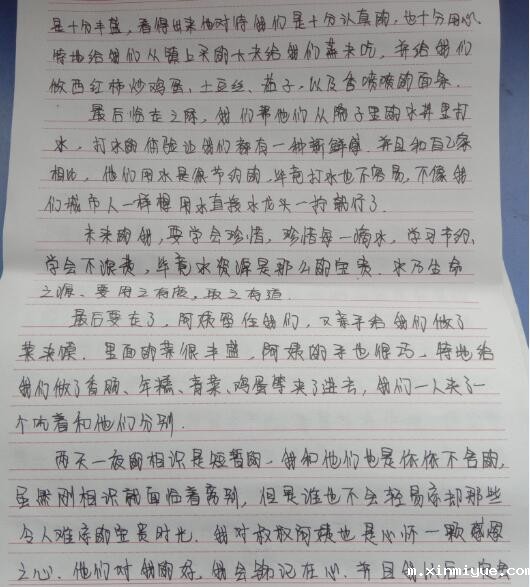 是十分丰盛，看得出来他对待我们是十分认真的，也十分用心
特地给我们从镇上买的大米给我们蒸来吃，并给我们
做西红柿炒鸡蛋、土豆丝、茄子，以及香喷喷的面条。
最后临走之际，我们帮他们从院子里的水井里打
水，打水的体验让我们都有一种新鲜感．并且和自己家
相比，他们用水是很节约的，毕竟打水也不容易，不像我
们城市人一样想用水直接水龙头一拧就行了．
未来的我，要学会珍惜，珍惜每一滴水，学习节约，
学会不浪费，毕竟水资源是那么的宝贵．水乃生命
之源、要用之有度，取之有道．
最后要走了，阿姨留住我们，又亲手给我们做了
菜夹馍．里面的菜很丰盛，阿姨的手也很巧，特地给
我们做了香肠、年糕、青菜、鸡蛋等夹了进去，我们一人夹了一
个吃着和他们分别．
两天一夜的相识是短暂的．我和他们也是依依不舍的，
虽然刚相识就面临着离别，但是谁也不会轻易忘却那些
令人难忘的宝贵时光．我对叔叔阿姨也是心怀一颗感恩
之心．他们对我的好，我会铭记在心．并且我
m.xinmiyue.com